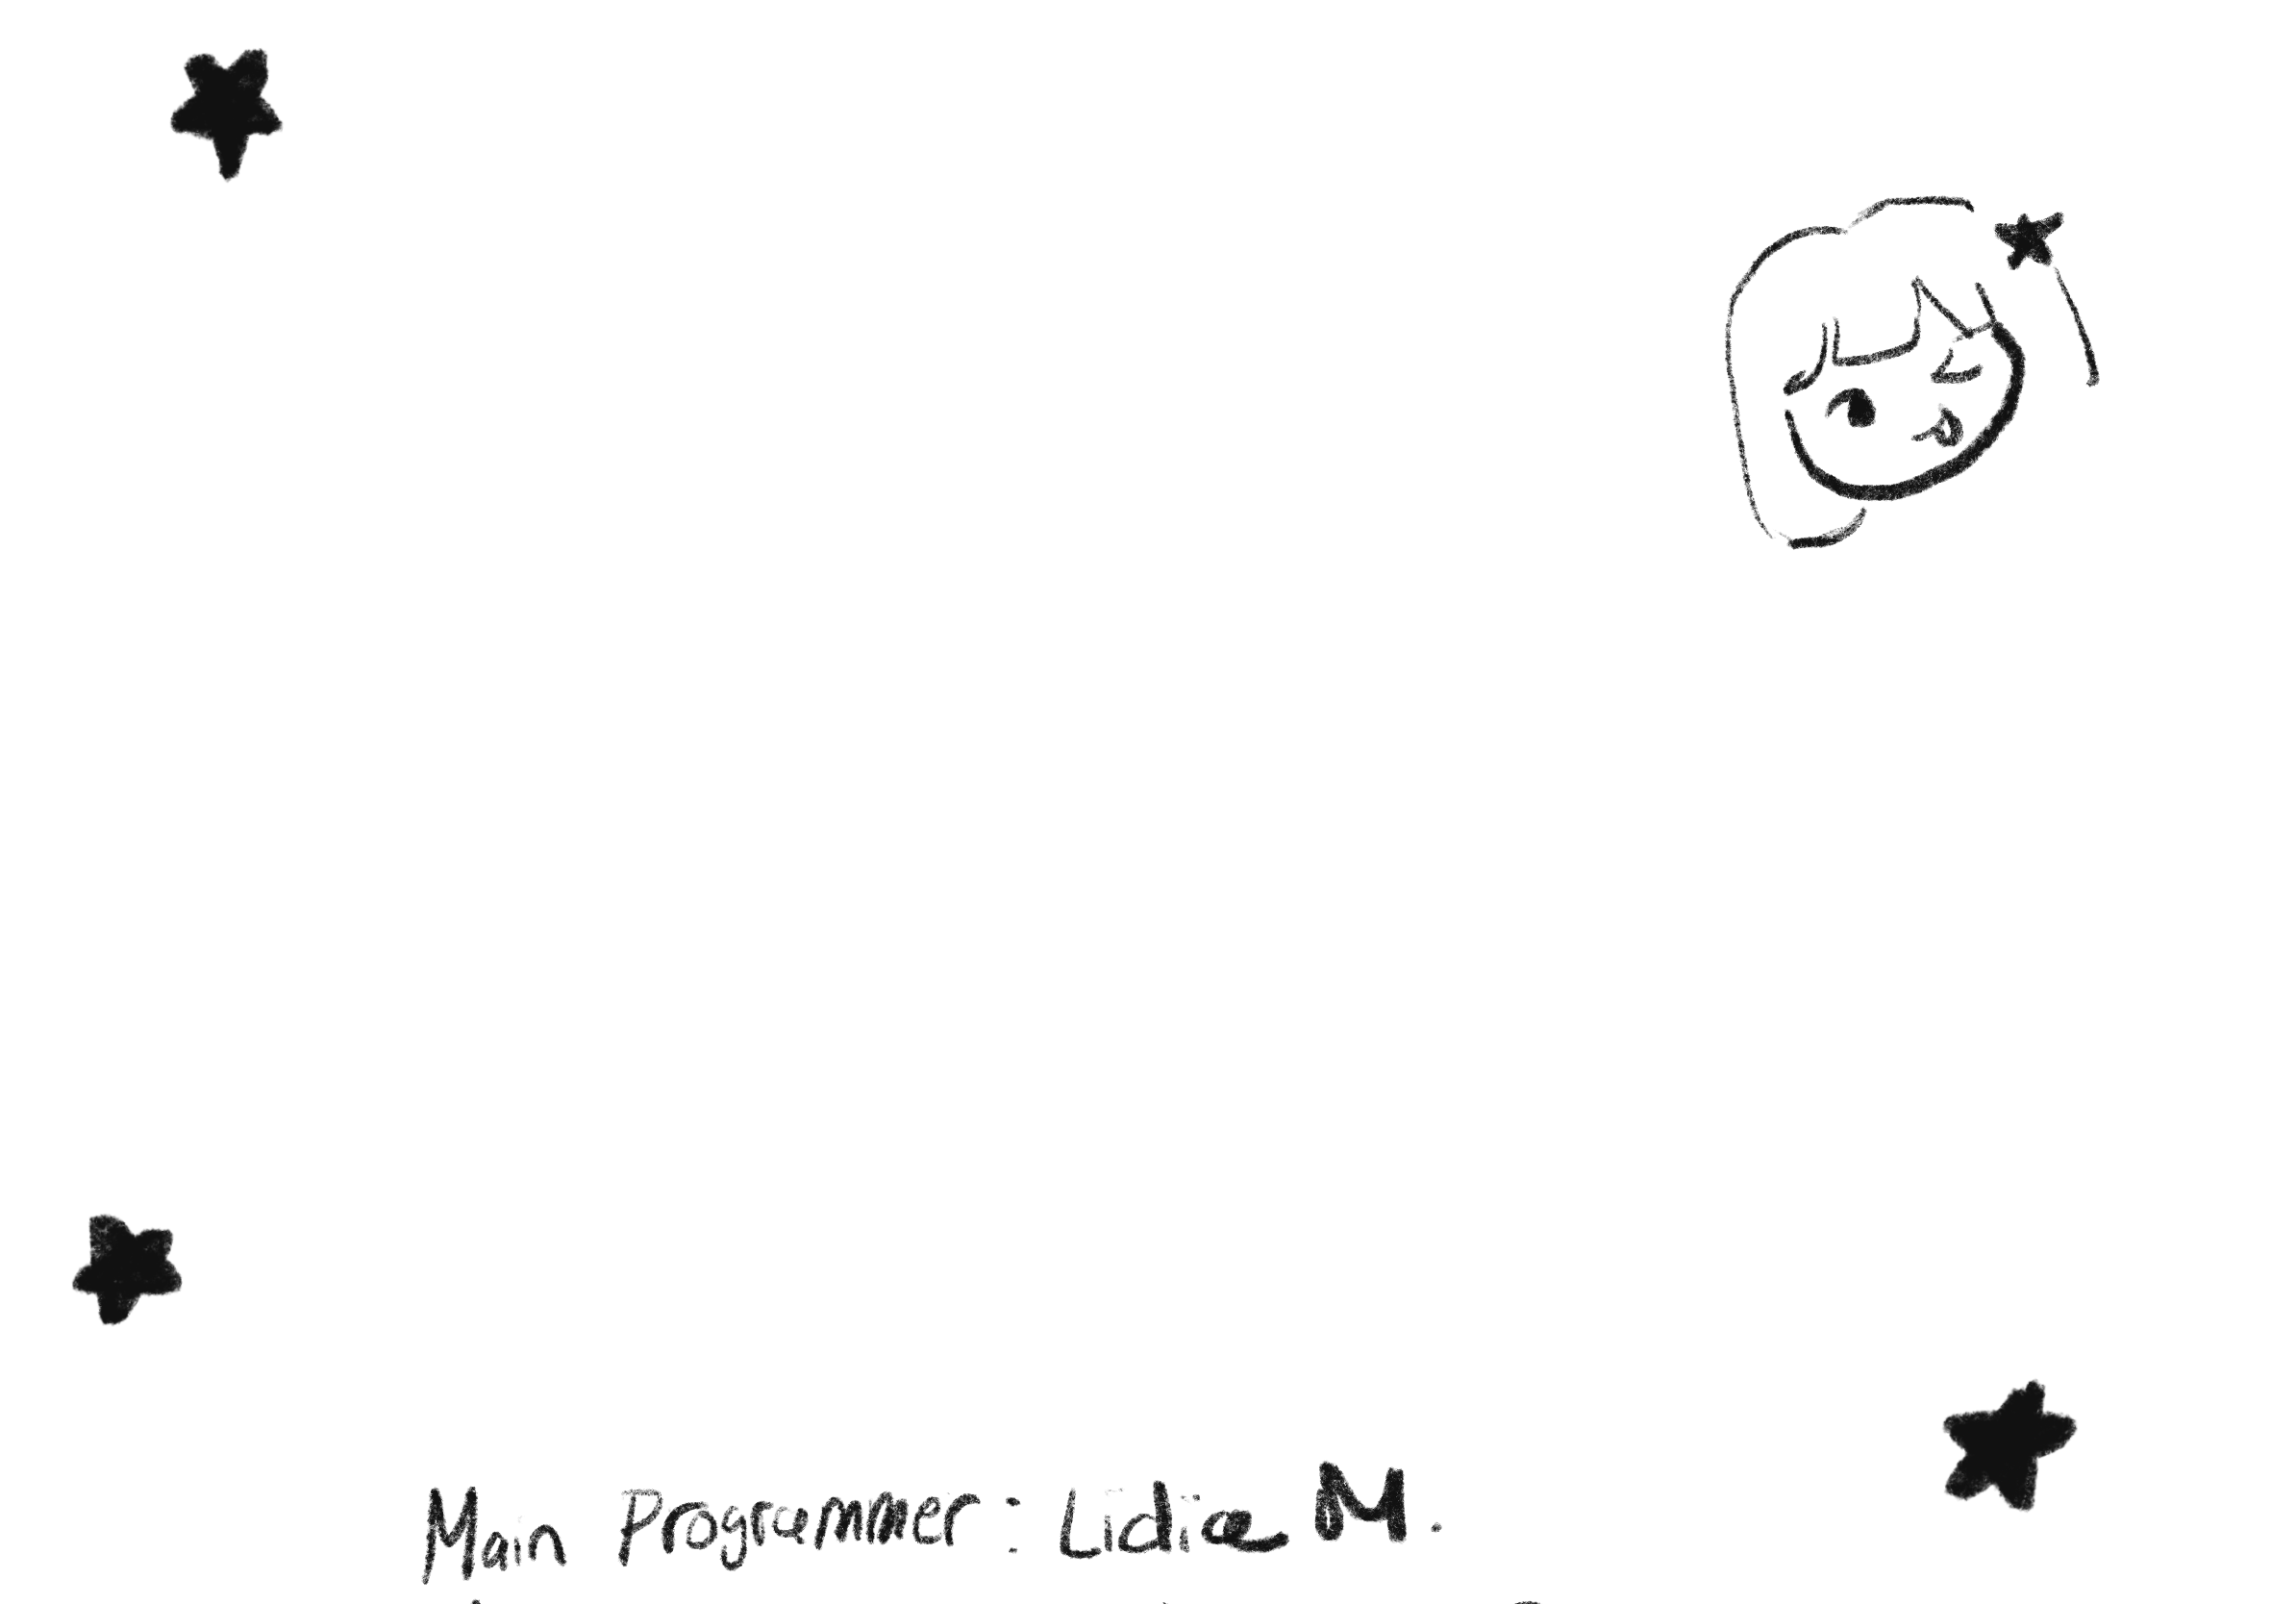 Main Programmer: Lidia M.